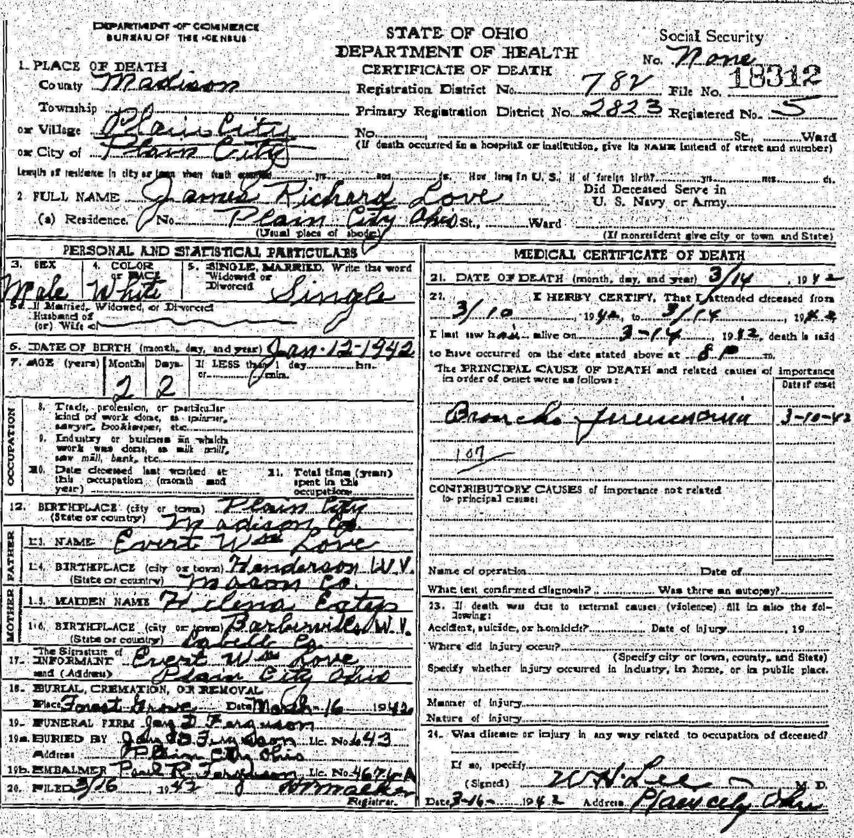 DEPARTMENT OF COMMERCE
BUREAU OF THE CENSUS
STATE OF OHIO
DEPARTMENT OF HEALTH
CERTIFICATE OF DEATH
Social Security
No. None
1. PLACE OF DEATH
County Madison
Registration District No. 782 File No. 18312
Township
Primary Registration District No. 2823 Registered No. 5
or Village Plain City
No. St., Ward
or City of Plain City
(If death occurred in a hospital or institution, give its NAME instead of street and number)
Length of residence in city or town where death occurred yrs. mos. ds. How long in U. S., if of foreign birth? yrs. mos. ds.
2. FULL NAME James Richard Love
Did Deceased Serve in
U. S. Navy or Army
(a) Residence. No. Plain City Ohio St., Ward
(Usual place of abode) (If nonresident give city or town and State)
PERSONAL AND STATISTICAL PARTICULARS
3. SEX 4. COLOR or RACE 5. SINGLE, MARRIED, Write the word
Widowed or
Divorced
Male White Single
5a. If Married, Widowed, or Divorced
Husband of
(or) Wife of
6. DATE OF BIRTH (month, day, and year) Jan-12-1942
7. AGE (years) Months Days If LESS than 1 day hrs.
or min.
2 2
OCCUPATION
8. Trade, profession, or particular
kind of work done, as spinner,
sawyer, bookkeeper, etc.
9. Industry or business in which
work was done, as silk mill,
saw mill, bank, etc.
10. Date deceased last worked at
this occupation (month and
year)
11. Total time (years)
spent in this
occupation
12. BIRTHPLACE (city or town) Plain City
(State or country) Madison Co.
FATHER
13. NAME Evert Wm Love
14. BIRTHPLACE (city or town) Henderson W.V.
(State or country) Mason Co.
MOTHER
15. MAIDEN NAME Helena
16. BIRTHPLACE (city or town) W.V.
(State or country) Cabell Co
The Signature of
17. INFORMANT Evert Wm Love
and (Address) Plain City Ohio
18. BURIAL, CREMATION, OR REMOVAL
Place Forest Grove Date March-16 1942
19. FUNERAL FIRM Jay D. Ferguson
19a. BURIED BY Jay D. Ferguson Lic. No. 643
Address Plain City Ohio
19b. EMBALMER Paul R. Ferguson Lic. No. 4676-A
20. FILED 3/16 1942
Registrar.
MEDICAL CERTIFICATE OF DEATH
21. DATE OF DEATH (month, day, and year) 3/14, 1942
22. I HEREBY CERTIFY, That I attended deceased from
3/10, 1942, to 3/14, 1942
I last saw him alive on 3-14 1942, death is said
to have occurred on the date stated above at 8 P m.
The PRINCIPAL CAUSE OF DEATH and related causes of importance
in order of onset were as follows:
Date of onset
Broncho Pneumonia 3-10-42
107
CONTRIBUTORY CAUSES of importance not related
to principal cause:
Name of operation Date of
What test confirmed diagnosis? Was there an autopsy?
23. If death was due to external causes (violence) fill in also the fol-
lowing:
Accident, suicide, or homicide? Date of injury 19
Where did injury occur?
(Specify city or town, county, and State)
Specify whether injury occurred in industry, in home, or in public place.
Manner of injury
Nature of injury
24. Was disease or injury in any way related to occupation of deceased?
If so, specify
(Signed) W H Lee M. D.
Date 3-16- 1942 Address Plain City Ohio